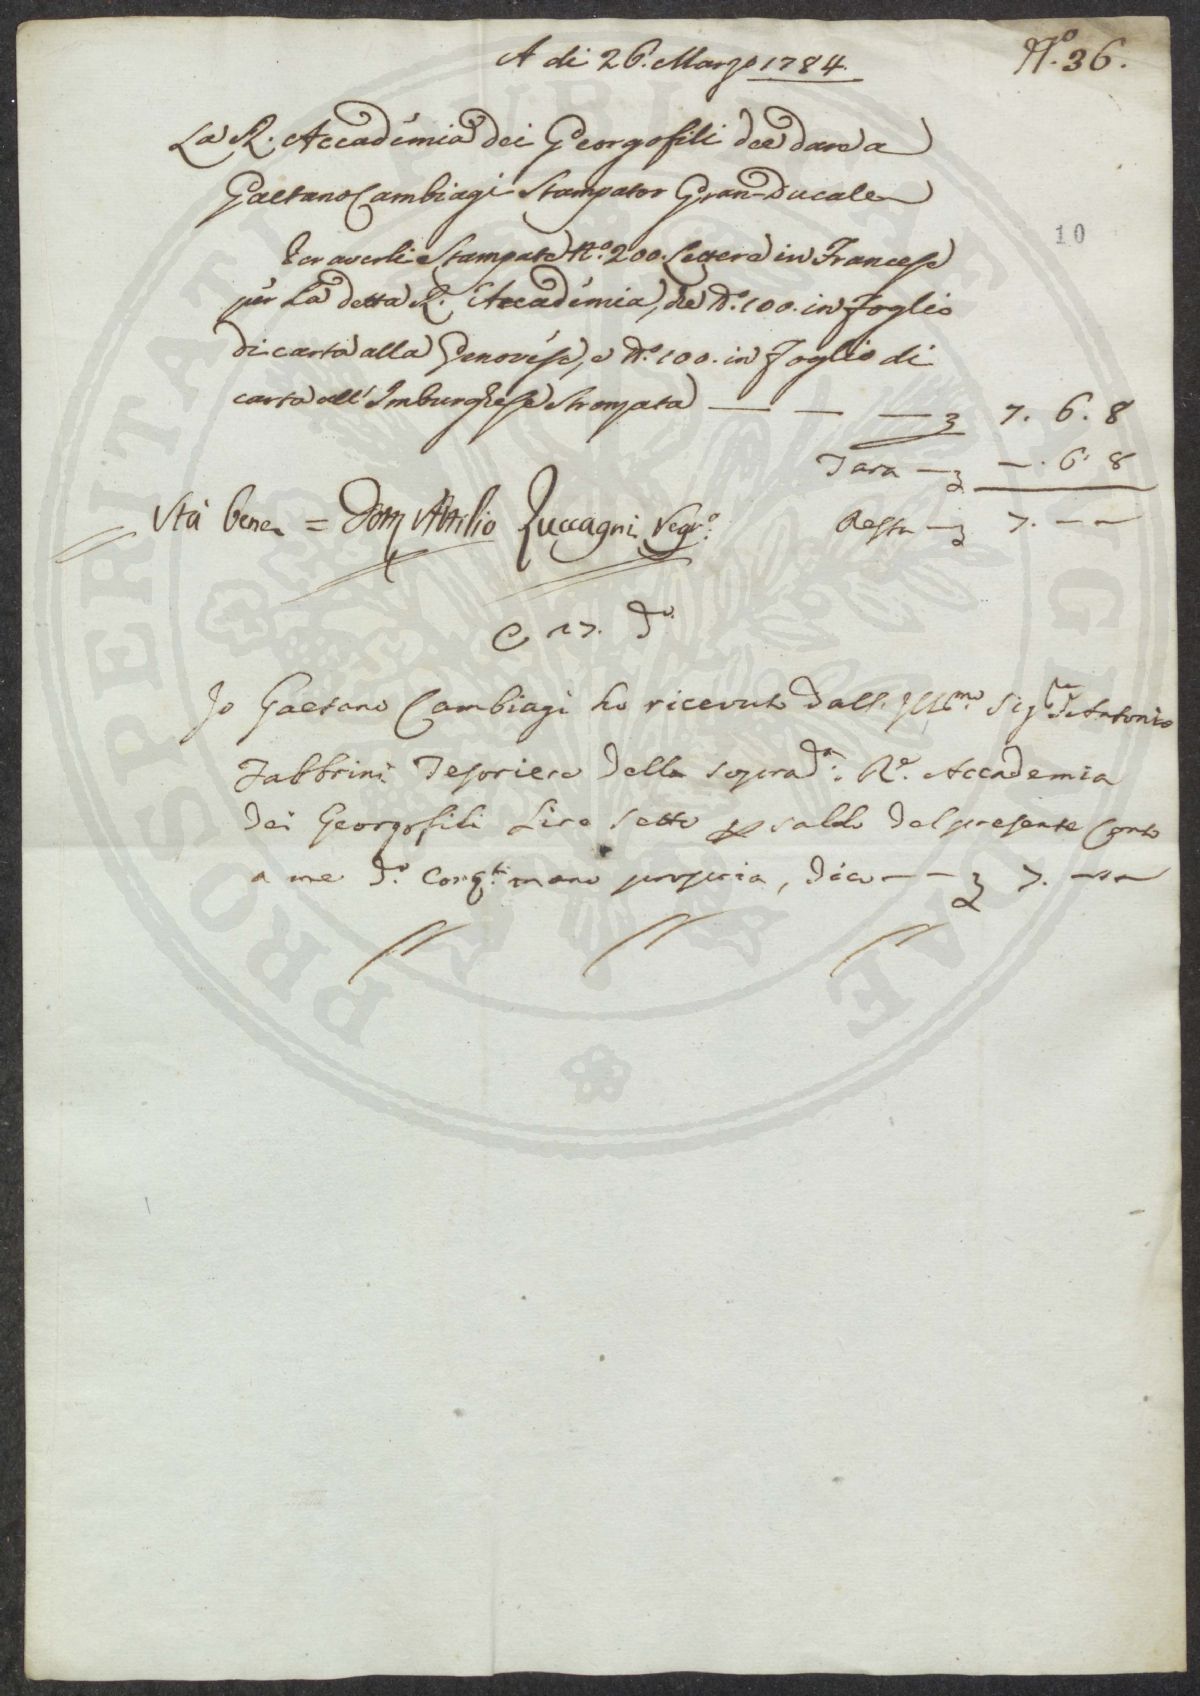 A di 26. Marzo 1784.
N.° 36.
La R. Accadémia dei Georgofili dee dare a
Gaetano Cambiagi Stampator Gran-Ducale
10
Per averli Stampate N.° 200. Lettere in Francese
pér La detta R. Accadémia, de N.° 100. in foglio
di carta alla Genovése, e N.° 100. in foglio di
carta all' Imburghese Stronzata — — — 7. 6. 8
Tara — —. 6. 8
Resta — 7. — —
Stà bene = Dott Attilio Zuccagni Segr.°
E 17. d.°
Io Gaetano Cambiagi ho ricevuto dall. Ill.mo Sig.re Antonio
Fabbrini Tesoriere della soprad.a R.e Accademia
dei Georgofili Lire sette p saldo del presente Conto
a me d.° Cont.ti mano propria, dico — — 7. — —
PROSPERITATI PUBLICAE AUGENDAE